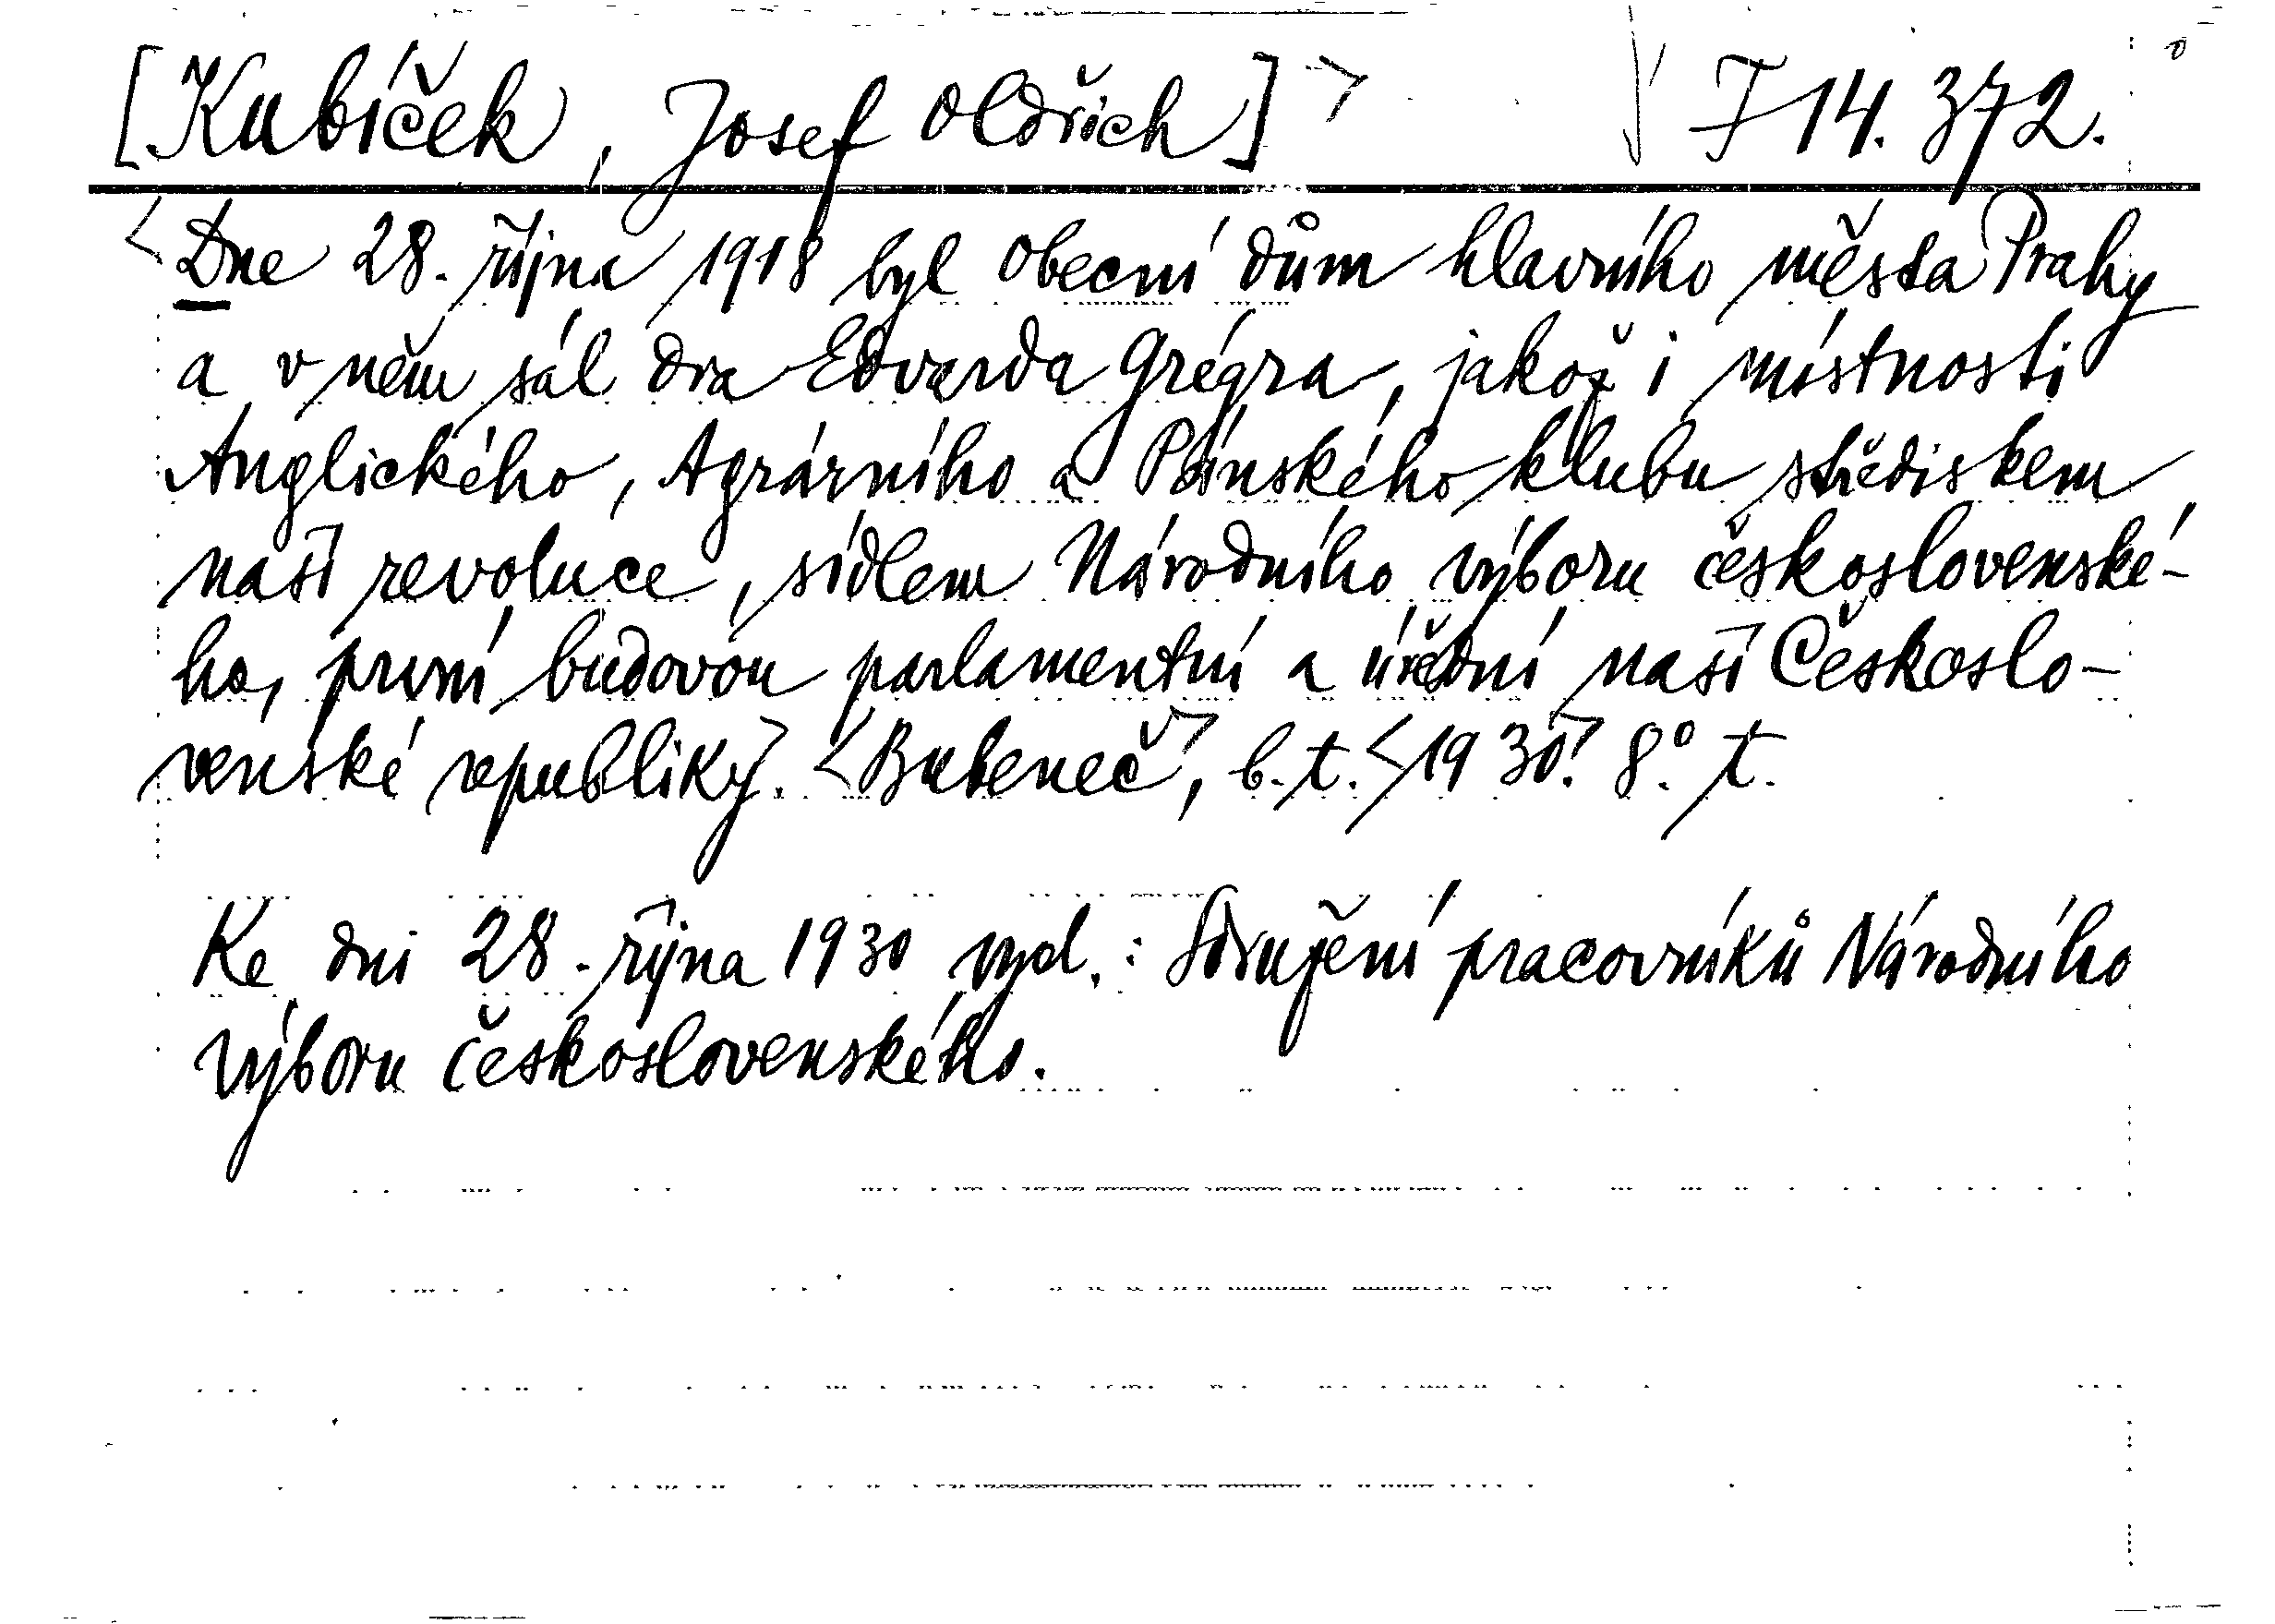 [Kubíček, Josef Oldřich] F 14.372.
Dne 28. října 1918 byl Obecní dům hlavního města Prahy
a v něm sál dra Edvarda Grégra, jakož i místnosti
Anglického, Agrárního a Pánského klubu střediskem
naší revoluce, sídlem Národního výboru československé-
ho, první budovou parlamentní a úřední naší Českoslo-
venské republiky. Bubeneč, b. t. 1930. 8°. t.
Ke dni 28. října 1930 vyd.: Sdružení pracovníků Národního
výboru československého.